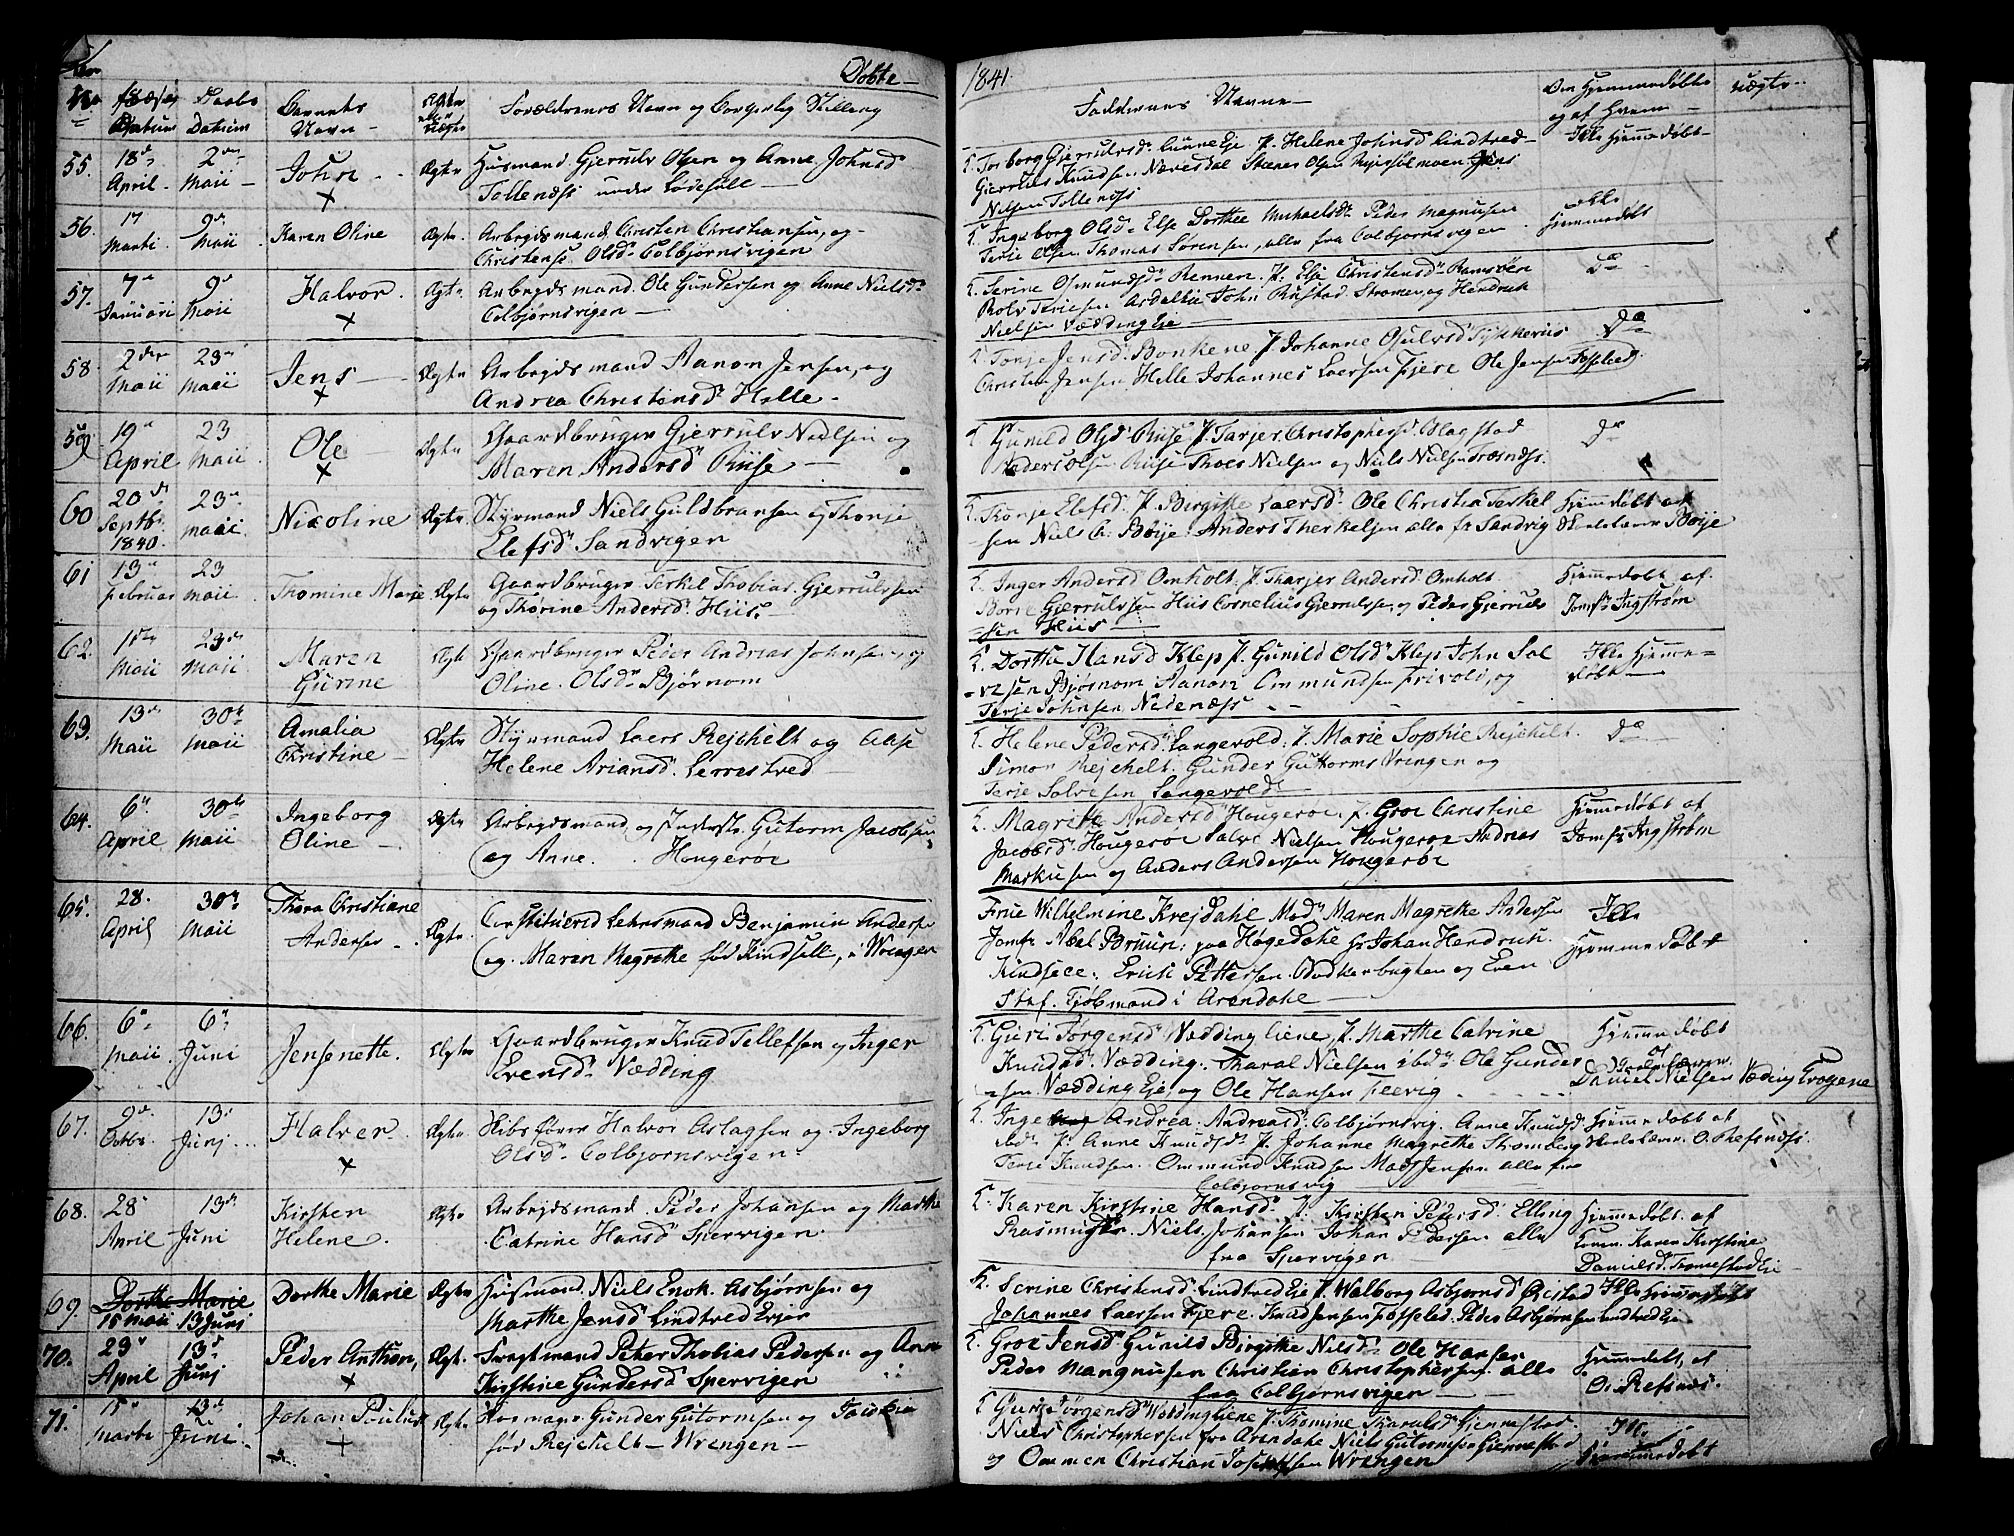 Døbte
1841.
No Fødsels Datum Daabs Datum Barnets Navn Ægte eller Uægte Forældrenes Navn og Borgerlig Stilling
Faddernes Navne
Om Hjemmedøbte og af Hvem
Uægte
55. 18de April 2den Maii John Ægte Husmand Gjerrulv Olsen og Anne Johnsd
Tollenæss under Lødesøll
K. Torborg Gjerrulvsd. P. Helene Johnsd Lindtved
Gjerrulv Knudsen Næresdal Olsen Jens
Nilsen Tollenæss
Ikke Hjemmedøbt
56. 17 Marti 9de Maii Karen Oline Ægte Arbeydsmand Christen Christiansen, og
Christense Olsd. Colbjørnsvigen
K. Ingeborg Olsd. Else Dorthea Michaelsd. Peder Magnusen
Terje Olsen Thomas Sørensen, alle fra Colbjørnsvigen
ikke Hjemmedøbt
57. 7de Januari 9de Maii Halvor Ægte Arbeydsmand Ole Gundersen og Anne Nielsd.
Colbjørnsvigen
K. Serine Osmundsd. Rennen. P. Else Christensd.
Rolv Teriesen John Rustad Strømen, og Hendrick
Nielsen Vædding Eje
Do
58. 2den Maii 23de Maii Jens Ægte Arbeydsmand Aanon Jensen, og
Andrea Christensd. Helle
K. Tonje Jensd. Bonkene P. Johanne
Christen Jensen Helle Johannes Laersen Fjere Ole Jensen Fosseled
Do
59. 19de April 23 Maii Ole Ægte Gaardbruger Gjerrulv Nielsen og
Maren Andersd Riise
K. Gunild Olsd. Riise P. Tarjer Christophersd.
Anders Olsen Riise Thoes Nielsen og Niels Nielsen Træsnæss.
Do
60 20de Septbr. 1840. 23de Maii Nicoline Ægte Styrmand Niels Guldbransen og Thonje
Elefsd. Sandvigen
K. Tronje Elefsd. P. Birgithe Laersd. Ole Christian Terkel
sen Niels C. Bøije Anders Therkelsen alle fr Sandvig
Hjemmdøbt af Skolelærer Bøije
61 13de Februar 23 Maii Thomine Marie Ægte Gaardbruger Terkel Thobias Gjerrulvsen
og Thorine Andersd. Hiis
K. Inger Andersd Omholt. P. Tharjer Andersd. Omholt
Borre Gjerrulvsen Hiis Cornelius Gjerrulvsen, og Peder Gjerruls
sen Hiis
Hjemmedøbt af Jomf. Ingstrøm
62. Maii 23de Maii Maren Gurine Ægte Gaardbruger Peder Andreas Johnsen og
Oline Olsd. Bjørnom
K. Dorthe Hansd Klep P. Gunild Olsd. Klep John Sal
vesen Bjørnom Aanon Ommundsen Frivold, og
Terje Johnsen Nedenæss
Ikke Hjemmedøbt
63. 13de Maii 30te Maii Amalia Christine Ægte Styrmand Laers Rejchelt og Aase
Helene Ariansd. Lerrestved
K. Helene Pedersd. Langevold. P. Marie Sophie Rejchelt.
Simon Rejchelt. Gunder Guttorms Wringen og
Terje Salvesen Langevold
Do
64. 6te April 30te Maii Ingeborg Oline Ægte Arbeydsmand og Inderste Gutorm Jacobsen
og Anne. Hougerøe
K. Magrethe Andersd Hougerøe. P. Groe Christine
Jacobsd. Hougerøe Salve Nielsen Hougerøe Andreas
Markusen og Anders Andersen Hougerøe
Hjemmedøbt af Jomfr. Ingstrøm
65. 28. April 30te Maii Thora Christiane Andersen Ægte Constituered Lehnsmand Benjamin Andersen
og Maren Magrethe fød Kindsell, i Wringen
Frue Wilhelmine Krejdahl Mad. Maren Magrethe Andersen
Jomfr. Abel Bruun; paa Høgedahl Hr Johan Hendrich
Kindsell. Erich Pettersen. Bødkerbugten og Even
Staf. Kjøbmand i Arendahl
Ikke Hjemmedøbt
66. 6te Maii 6te Juni Jensenette Ægte Gaardbruger Knud Tellefsen og Inger
Evensd. Vædding
K. Guri Jørgensd. Vædding Liene, P. Marthe Catrine
Knudsd. Vædding. Tharal Nielsen ibd. Ole Gunder
sen Vædding Eje, og Ole Hansen
Hjemmedøbt af Daniel Nielsen
67. 9de Octbr. 13 Junj Halver Ægte Skibsfører Halvor Aslagsen og Ingeborg
Olsd. Colbjørnsvigen
K. Inge Andrea Andreasd. Colbjørnsvig. Anne Knudsd.
P. Anne Knudsd. P. Johanne Magrethe Strømberg
Terje Knudsen. Ommund Knudsen Mads Jensen alle fra
Colbjørnsvig
Hjemmedøbt af Skolelærer O. Refsnæs.
68. 28 April 13de Juni Kirsten Helene Ægte Arbeydsmand Peder Johansen og Marthe
Catrine Hansd Spervigen
K. Karen Kirstine Hansd. P. Kirsten Pedersd. Elling
Rasmussen. Niels Johansen Johan Pedersen alle
fra Spervigen
Hjemmedøbt af Karen Kirstine Danielsd. Tromestad Eie
69. Dorthe Marie 15 Maii 13 Junj Dorthe Marie Ægte Husmand Niels Enok Asbjørnsen og
Marthe Jensd. Lindtved Eje
K. Serine Christensd. Lindtved Eje P. Walborg Asbjørnsd Øiestad
Johannes Laersen Fjere. Knud Jensen Fosseled Peder Asbjørnsen Lindtved Eje
Ikke Hjemmedøbt
70. 23de April 13de Junj Peder Anthon Ægte Fragtmand Peter Thobias Pedersen og Anne
Kirstine Gundersd Spervigen
K. Groe Jensd. Gunild Birgithe Nielsd. Ole Hansen
Peder Mangnusen Christian Christophersen alle
fra Colbjørnsvigen
Hjemmedøbt, af O. Refsnæs.
71. 15de Marti 13de Juni Johan Poulus Ægte Gunder Gutormsen og
fød Rejchelt Wrengen
K. Gurje Jørgensd. Vædding Liene P. Thomine Tharalsd. Gjennestad.
Niels Christophersen fra Arendahl Niels Gutormsen Gjennestad
og Ommen Christian Wrengen
Ikke Hjemmedøbt